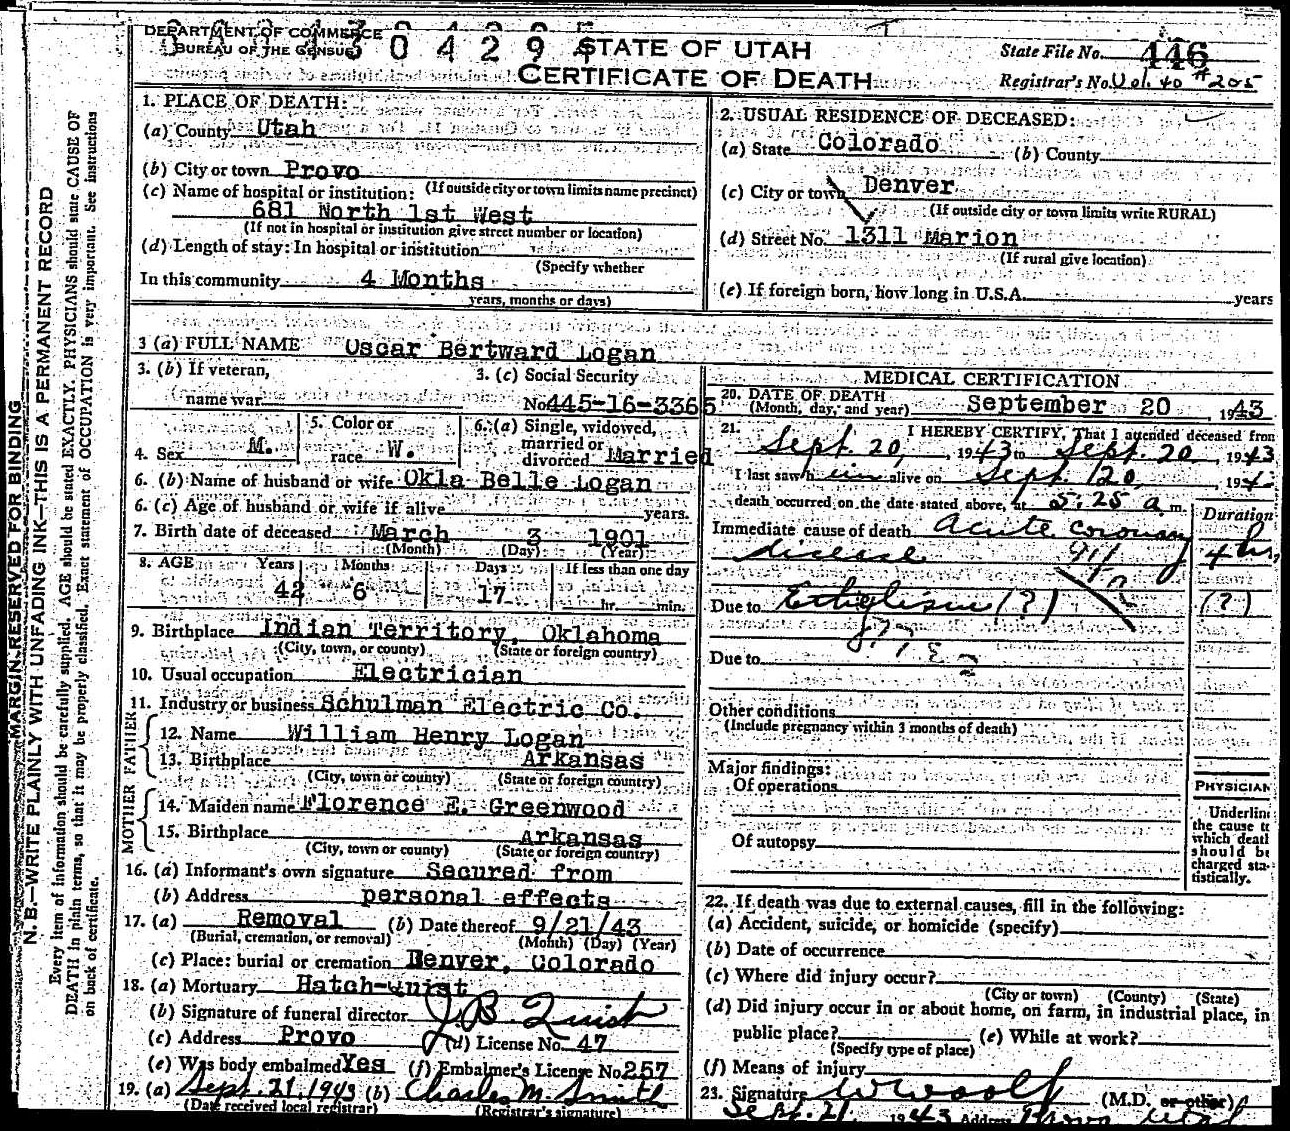 DEPARTMENT OF COMMERCE
BUREAU OF THE CENSUS
STATE OF UTAH
CERTIFICATE OF DEATH
State File No. 446
Registrar's No. Vol. 40 #205
MARGIN RESERVED FOR BINDING
N. B.—WRITE PLAINLY WITH UNFADING INK—THIS IS A PERMANENT RECORD
Every item of information should be carefully supplied. AGE should be stated EXACTLY. PHYSICIANS should state CAUSE OF
DEATH in plain terms, so that it may be properly classified. Exact statement of OCCUPATION is very important. See instructions
on back of certificate.
1. PLACE OF DEATH:
(a) County Utah
(b) City or town Provo
(If outside city or town limits name precinct)
(c) Name of hospital or institution:
681 North 1st West
(If not in hospital or institution give street number or location)
(d) Length of stay: In hospital or institution
(Specify whether
In this community 4 Months
years, months or days)
2. USUAL RESIDENCE OF DECEASED:
(a) State Colorado (b) County
(c) City or town Denver
(If outside city or town limits write RURAL)
(d) Street No. 1311 Marion
(If rural give location)
(e) If foreign born, how long in U.S.A. years
3 (a) FULL NAME Oscar Bertward Logan
3. (b) If veteran,
name war
3. (c) Social Security
No 445-16-3365
4. Sex M.
5. Color or
race W.
6. (a) Single, widowed,
married or
divorced Married
6. (b) Name of husband or wife Okla Belle Logan
6. (c) Age of husband or wife if alive years.
7. Birth date of deceased March 3 1901
(Month) (Day) (Year)
8. AGE Years Months Days If less than one day
42 6 17 hr. min.
9. Birthplace Indian Territory, Oklahoma
(City, town, or county) (State or foreign country)
10. Usual occupation Electrician
11. Industry or business Schulman Electric Co.
FATHER
12. Name William Henry Logan
13. Birthplace Arkansas
(City, town or county) (State or foreign country)
MOTHER
14. Maiden name Florence E. Greenwood
15. Birthplace Arkansas
(City, town or county) (State or foreign country)
16. (a) Informant's own signature Secured from
(b) Address personal effects
17. (a) Removal (b) Date thereof 9/21/43
(Burial, cremation, or removal) (Month) (Day) (Year)
(c) Place: burial or cremation Denver, Colorado
18. (a) Mortuary Hatch-Quist
(b) Signature of funeral director J. B. Quist
(c) Address Provo (d) License No. 47
(e) Was body embalmed Yes (f) Embalmer's License No. 257
19. (a) Sept. 21, 1943 (b) Charles M. Smith
(Date received local registrar) (Registrar's signature)
MEDICAL CERTIFICATION
20. DATE OF DEATH
(Month, day, and year) September 20 1943
21. I HEREBY CERTIFY, That I attended deceased from
Sept. 20, 1943 to Sept. 20, 1943
I last saw him alive on Sept. 20, 194
death occurred on the date stated above, at 5:25 a m.
Duration
Immediate cause of death Acute coronary
disease 4 hrs
Due to (?) (?)
Due to
Other conditions
(Include pregnancy within 3 months of death)
Major findings:
Of operations
Of autopsy
PHYSICIAN
Underline
the cause to
which death
should be
charged sta-
tistically.
22. If death was due to external causes, fill in the following:
(a) Accident, suicide, or homicide (specify)
(b) Date of occurrence
(c) Where did injury occur?
(City or town) (County) (State)
(d) Did injury occur in or about home, on farm, in industrial place, in
public place? (e) While at work?
(Specify type of place)
(f) Means of injury
23. Signature W Woolf (M.D. or other)
Sept. 21, 1943 Address Provo Utah